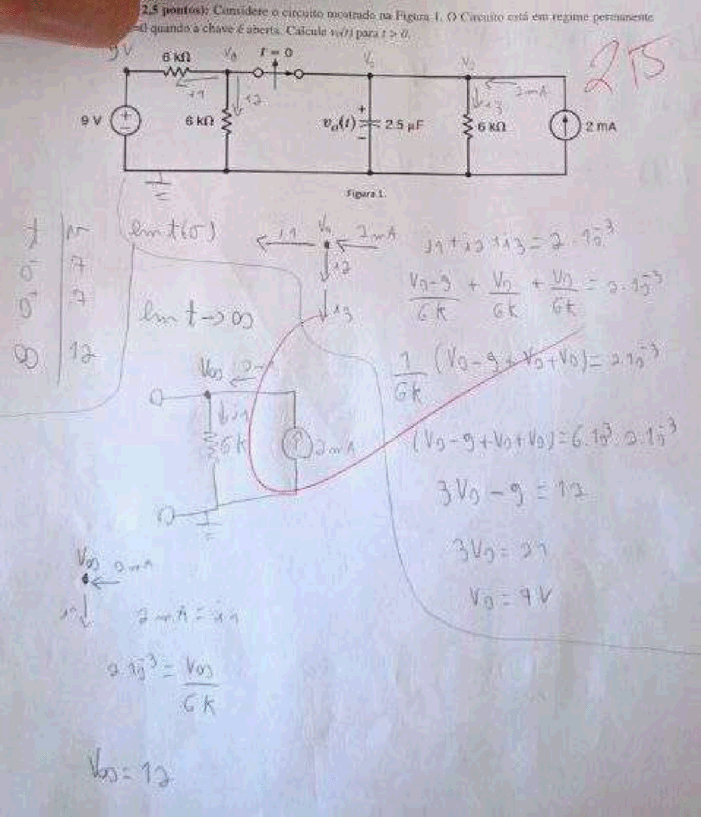 2,5 pontos): Considere o circuito mostrado na Figura 1. O Circuito está em regime permanente
=0 quando a chave é aberta. Calcule vo(t) para t > 0.
9V
6 kΩ
V0
t = 0
V0
V0
2,5
i1
i2
i3
2mA
9 V
6 kΩ
vo(t)
+
−
2.5 µF
6 kΩ
2 mA
Figura 1.
t | v
0⁻ 7
0⁺ 7
∞ 12
em t(0)
i1
V0
2mA
i2
i3
i1+i2+i3=2.10⁻³
V0-9/6K + V0/6K + V0/6K = 2.10⁻³
em t→∞
1/6K (V0-9+V0+V0)=2.10⁻³
V∞ 2m
i1
6K
2mA
(V0-9+V0+V0)=6.10³.2.10⁻³
3V0-9=12
3V0=21
V0=7V
V∞ 2mA
i1
2mA=i1
2.10⁻³=V∞/6K
V∞=12